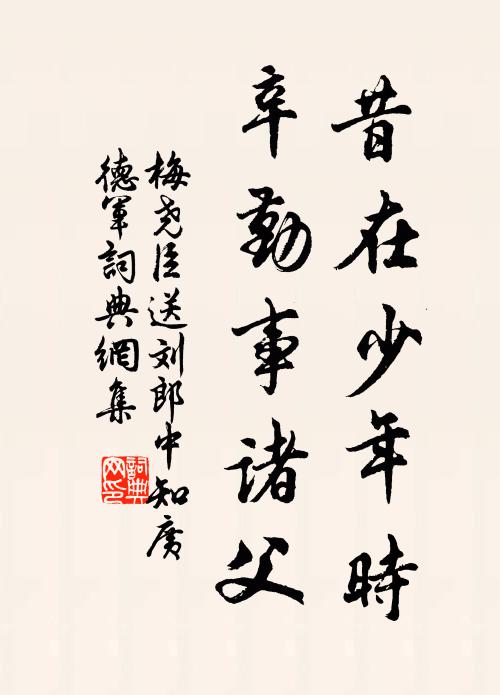 昔在少年時
辛勤事諸父
梅尧臣送刘郎中知廣
德軍詞典網集
詞典
网印